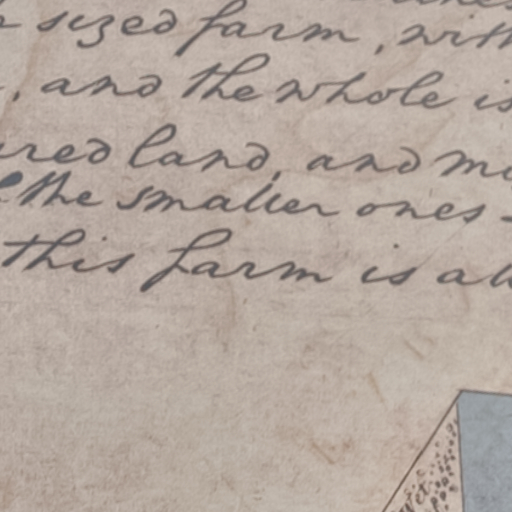 sized farm, with
, and the whole is
red land, and mo
the smaller ones -
this farm is al